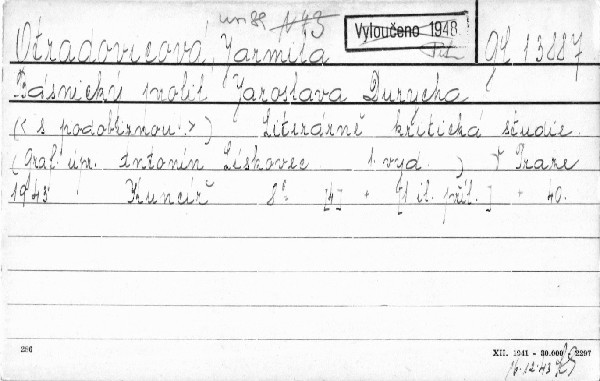 Vyloučeno 1948
Otradovicová, Jarmila gl 13887
Básnický profil Jaroslava Durycha
(< s podobiznou.>) Literárně kritická studie.
(Graf. úpr. Antonín Lískovec 1. vyd.) V Praze
1943 Kuncíř 8° [4] + [1 il. příl.] + 40.
286
XII. 1941 - 30.000 - 2297
16.12.43